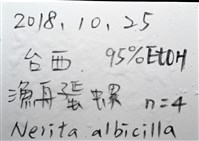 2018, 10, 25
台西 95% EtOH
漁舟蜑螺 n=4
Nerita albicilla